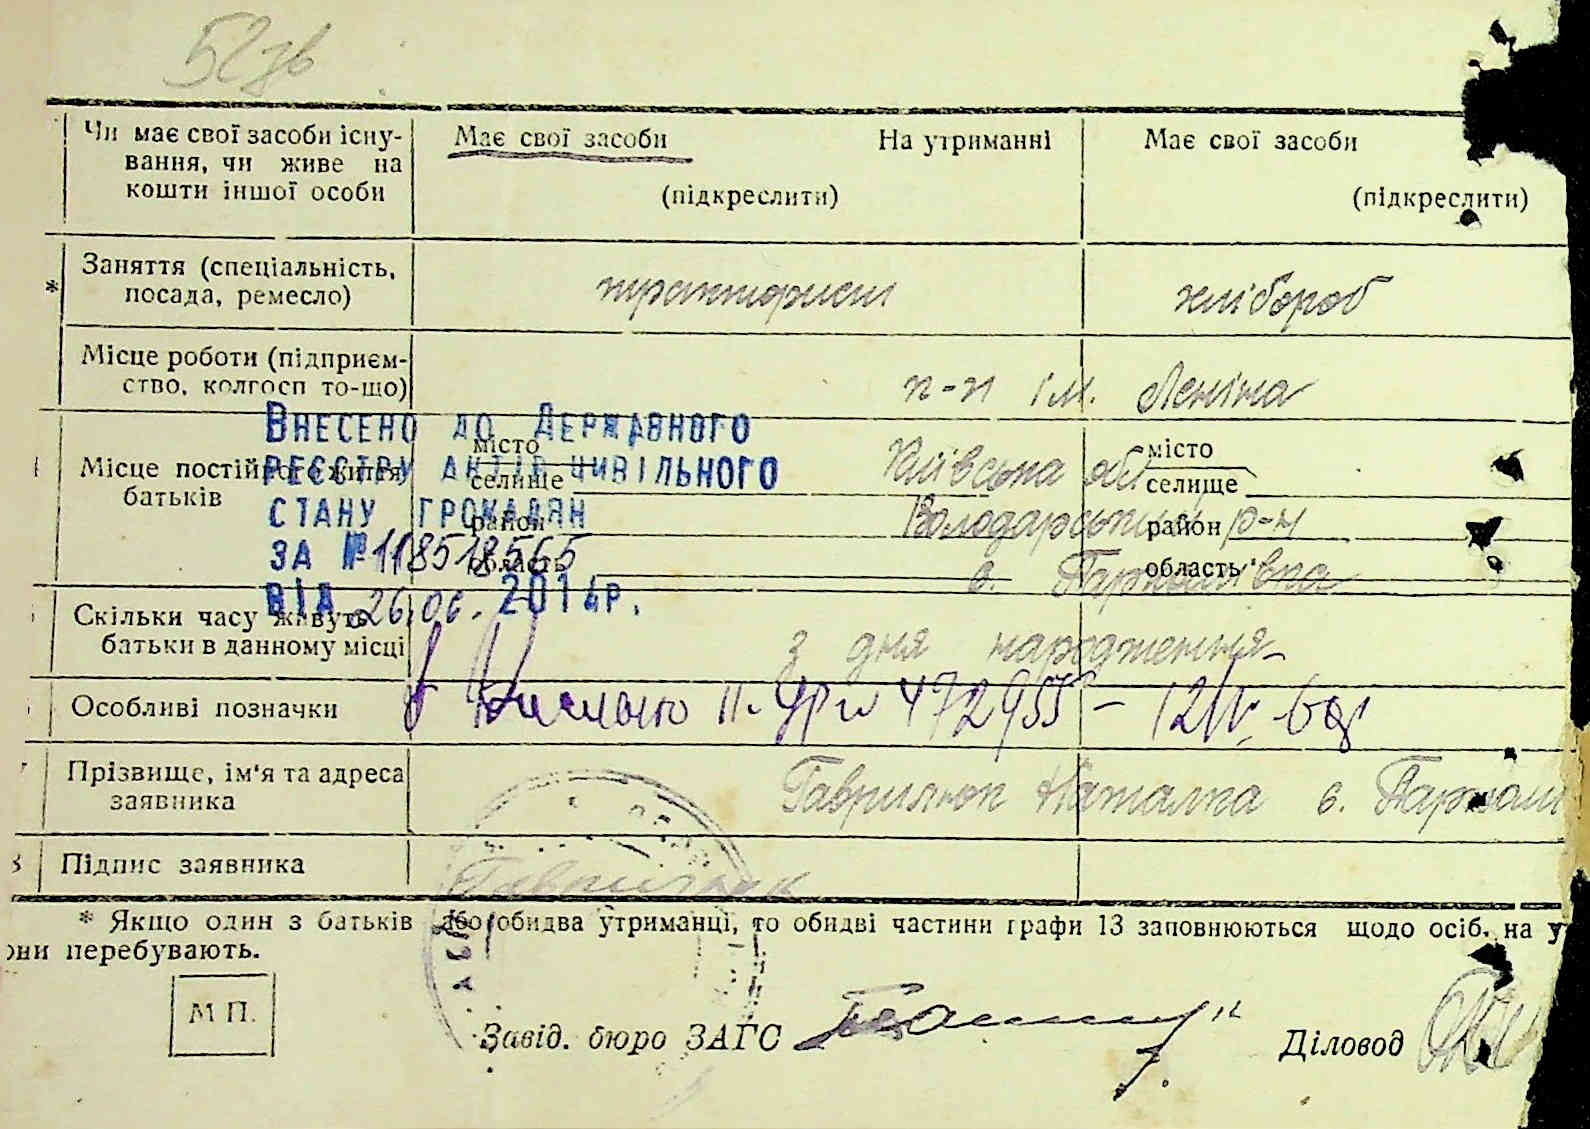 52зв
Чи має свої засоби існу-
вання, чи живе на
кошти іншої особи
Має свої засоби На утриманні
(підкреслити)
Має свої засоби
(підкреслити)
* Заняття (спеціальність,
посада, ремесло)
тракторист
хлібороб
Місце роботи (підприєм-
ство, колгосп то-що)
к-п ім. Леніна
Внесено до Державного
реєстру актів цивільного
стану громадян
за №118518565
від 26.06. 2014р.
Місце постійного життя
батьків
місто
селище
район
область
Київська обл
Володарський р-н
с. Пархомівка
місто
селище
район
область
Скільки часу живуть
батьки в данному місці
з дня народження
Особливі позначки
472955 – 12/IV
Прізвище, ім'я та адреса
заявника
Гаврилюк Наталка с. Пархом
Підпис заявника
Гаврилюк
* Якщо один з батьків або обидва утриманці, то обидві частини графи 13 заповнюються щодо осіб, на у
они перебувають.
М П.
Завід. бюро ЗАГС
Діловод